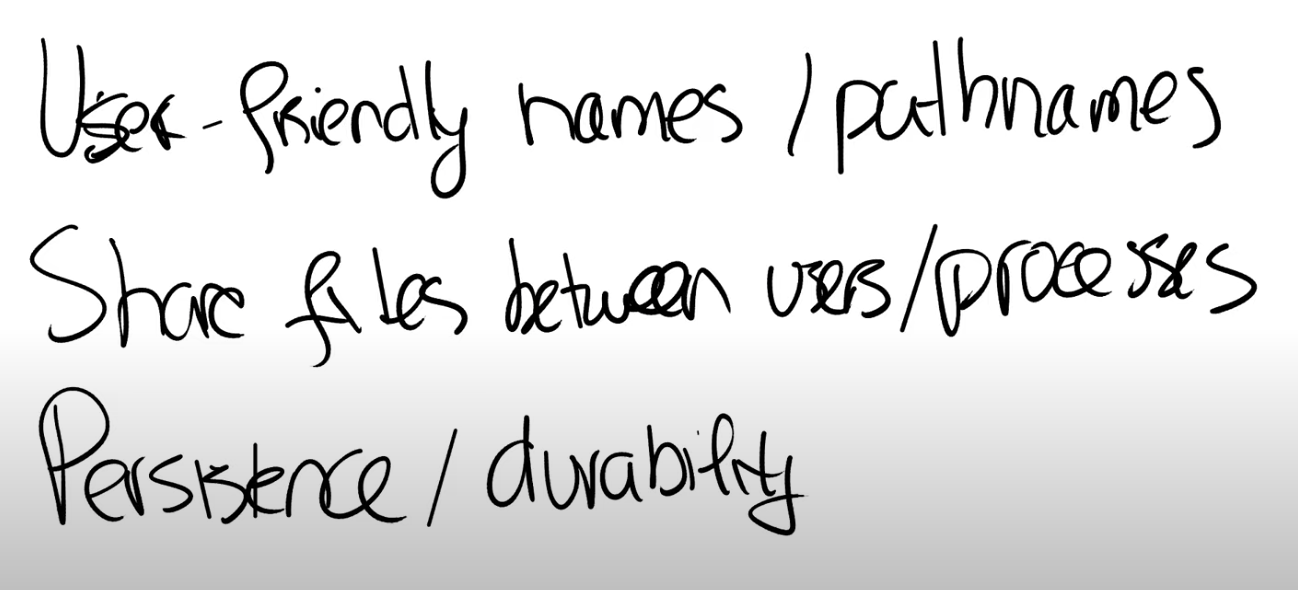 User-friendly names / pathnames
Share files between users/processes
Persistence / durability